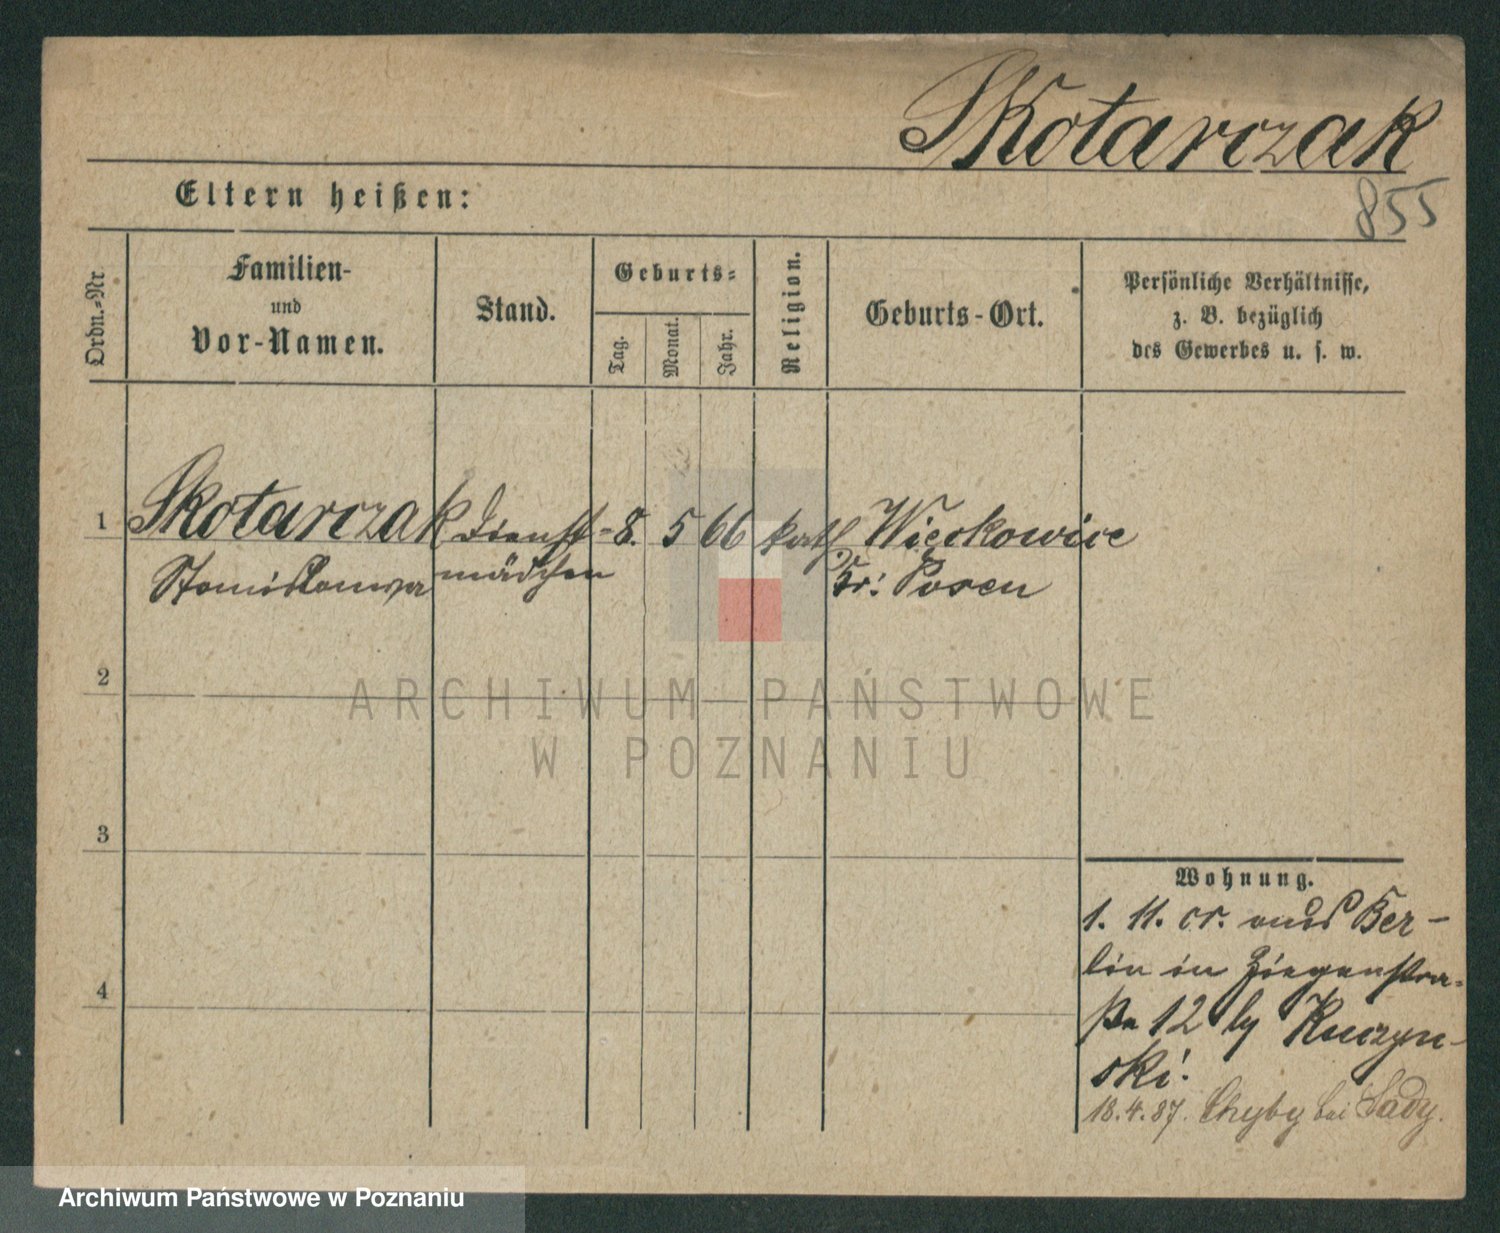 Skotarczak
855
Eltern heißen:
Ordn.-Nr.
Familien-
und
Vor-Namen.
Stand.
Geburts-
Tag.
Monat.
Jahr.
Religion.
Geburts-Ort.
Persönliche Verhältnisse,
z. B. bezüglich
des Gewerbes u. s. w.
1 Skotarczak Dienst- 8. 5 66 kath Więckowice
Stanislawa mädchen Kr: Posen
2
3
4
Wohnung.
1. 11. cr. aus Ber-
lin in Ziegenstra-
ße 12 by Kuczyn-
ski.
18.4.87. Chyby bei Sady.
ARCHIWUM PAŃSTWOWE
W POZNANIU
Archiwum Państwowe w Poznaniu